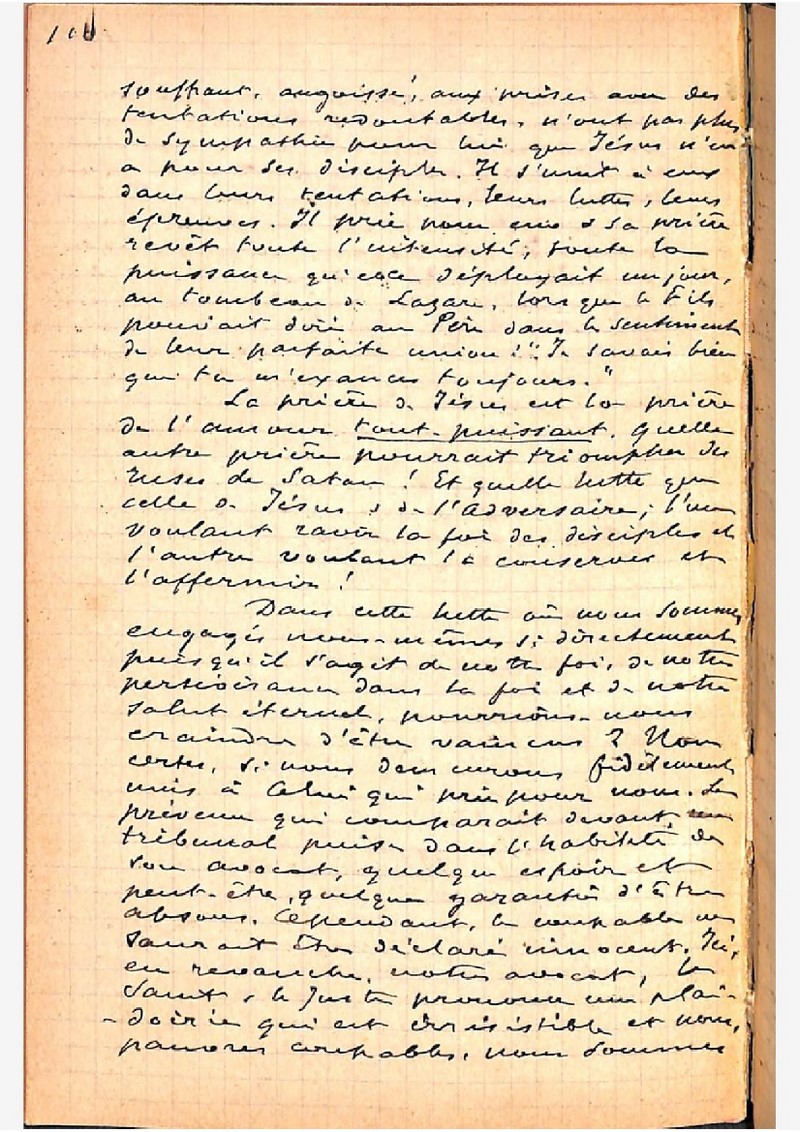 souffrant, angoissé, aux prises avec des
tentations redoutables, n'ont pas plus
de sympathie pour lui que Jésus n'en
a pour ses disciples. Il s'unit à eux
dans leurs tentations, leurs luttes, leurs
épreuves. Il prie pour eux & sa prière
revêt toute l'intensité, toute la
puissance qu'elle déployait un jour,
au tombeau de Lazare, lorsque le Fils
pouvait dire au Père dans le sentiment
de leur parfaite union : "Je savais bien
que tu m'exauces toujours."
La prière de Jésus est la prière
de l'amour tout-puissant. Quelle
autre prière pourrait triompher des
ruses de Satan ! Et quelle lutte que
celle de Jésus & de l'Adversaire, l'un
voulant ravir la foi des disciples et
l'autre voulant la conserver et
l'affermir !
Dans cette lutte où nous sommes
engagés nous-mêmes si directement
puisqu'il s'agit de notre foi, de notre
persévérance dans la foi et de notre
salut éternel, pourrions-nous
craindre d'être vaincus ? Non
certes, si nous demeurons fidèlement
unis à Celui qui prie pour nous. Le
prévenu qui comparaît devant un
tribunal puise dans l'habileté de
son avocat, quelque espoir et
peut-être, quelque garantie d'être
absous. Cependant, le coupable ne
saurait être déclaré innocent. Ici,
en revanche, notre avocat, le
Saint & le Juste prononce une plai-
-doirie qui est irrésistible et nous,
pauvres coupables, nous sommes